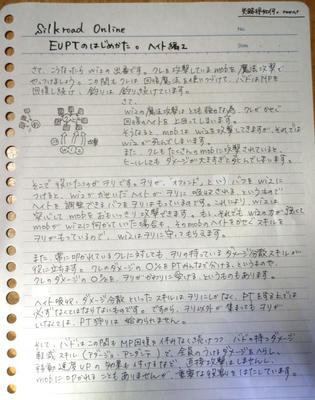 Silkroad Online
EUPTのはじめかた。ヘイト編2
さて、こうなったらwizの出番です。クレを攻撃しているmobを魔法攻撃で
やっつけましょう。この間もクレは回復魔法を使いつづけ、バドはMPを
回復し続け、釣りは釣り続けています。
さて、
wizの魔法攻撃はとても強力な為、クレがかせぐ
回復のヘイトを上回ってしまいます。
そうなると、mobはwizを攻撃してきますが、それでは
wizが死んでしまいます。
また、クレもたくさんのmobに攻撃されていると、
ヒールしてもダメージが大きすぎると死んでしまいます。
そこで 役に立つのがヲリです。ヲリが、 という バフをwizに
つけると、wizがかせいだヘイトが ヲリに吸収される、というもので
ヘイトを 調整できるバフをヲリはもっているのです。これにより、wizは
安心して mobをおもいっきり攻撃できます。もし、それでもwizの方が強くて
mobがwizに向かっていった場合も、そのmobのヘイトをかせぐスキルを
ヲリがもっているので、wizはヲリに守ってもらえます。
また、常に叩かれているクレに対しても、ヲリの持っているダメージ分散スキルが
役に立ちます。クレのダメージの○%をPTみんなで分ける、というものや、
クレのダメージの○%を、ヲリがかわりに受ける、というものもあります。
ヘイト吸収、ダメージ分散といったスキルはヲリにしかなく、PTを守る上では
必ずなくてはならないものです。ですから、ヲリ以外が集まってもヲリが
いなくては、PT狩りは始められません。
そして、バドはこの間もMP回復をイチャイチャし続けつつ、バドの持つダメージ
軽減スキル(アダージョ・アンダンテ)で、全員のうけるダメージをへらし、
移動速度UPの効果も付けるなど、直接攻撃はしませんし
mobに叩かれることもありませんが、重要な役割りをはたしています。